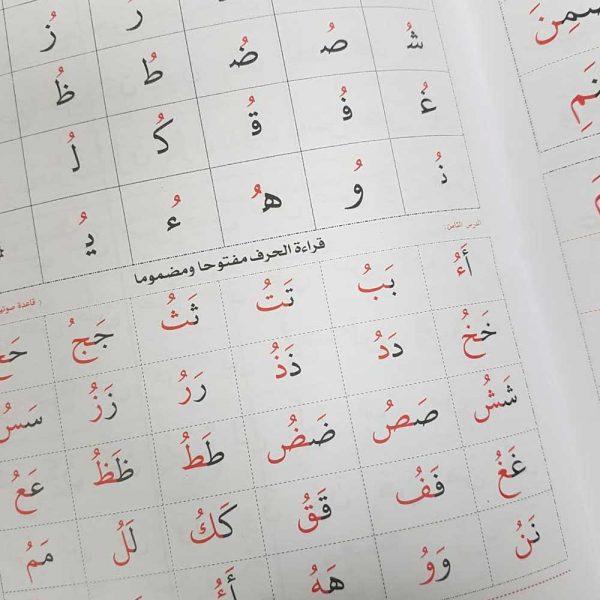 ر زُ
شُ صُ ضُ طُ ظُ
غُ فُ قُ كُ لُ
نُ وُ هُ ءُ يُ
الدرس الثامن:
قراءة الحرف مفتوحا ومضموما
قاعدة
أَءُ بَبُ تَتُ ثَثُ جَجُ حَحُ
خَخُ دَدُ ذَذُ رَرُ زَزُ سَسُ
شَشُ صَصُ ضَضُ طَطُ ظَظُ عَعُ
غَغُ فَفُ قَقُ كَكُ لَلُ مَمُ
نَنُ وَوُ هَهُ أَءُ